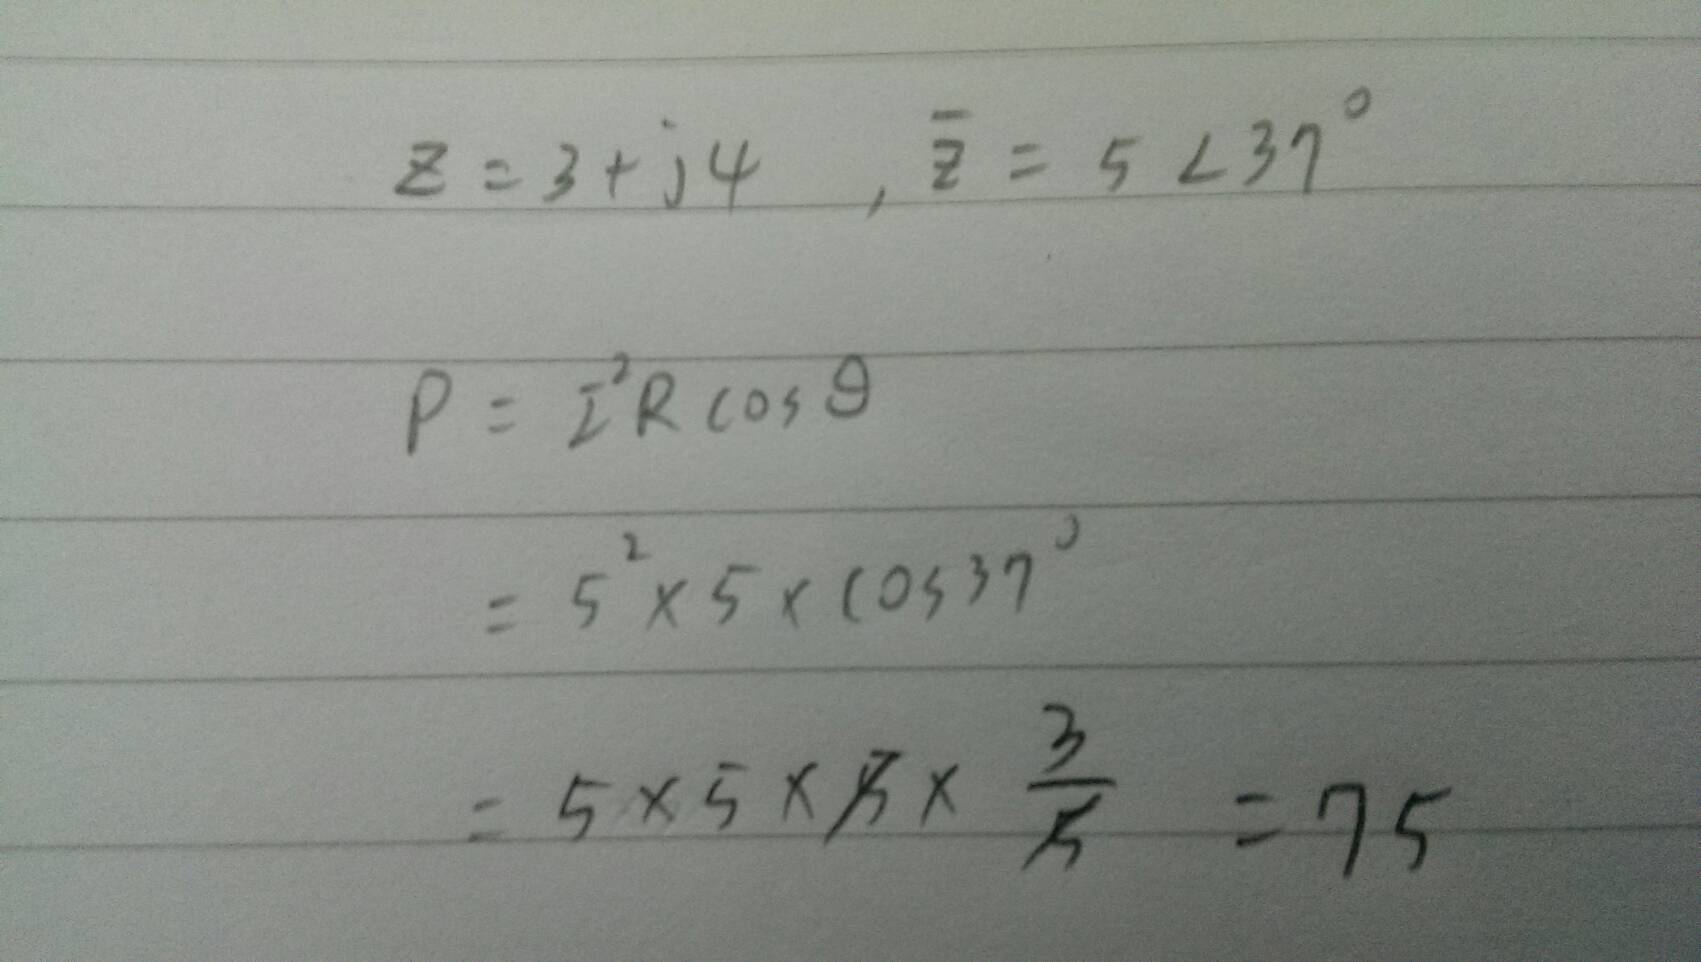 z = 3 + j4 , z̄ = 5 ∠37°
P = I²R cos θ
= 5² × 5 × cos 37°
= 5 × 5 × 5 × 3/5 = 75